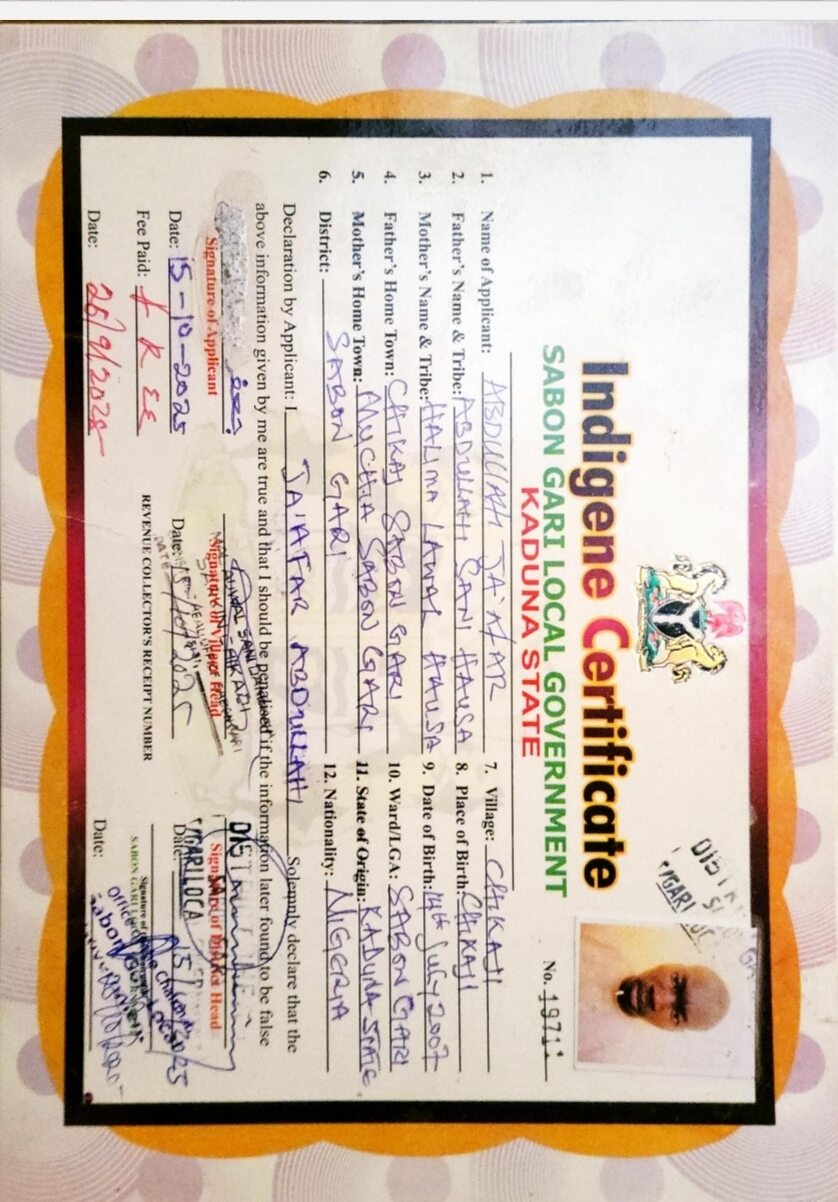 Indigene Certificate
SABON GARI LOCAL GOVERNMENT
KADUNA STATE
No. 1971
1. Name of Applicant: ABDULLAHI JA'AFAR
2. Father's Name & Tribe: ABDULLAHI SANI HAUSA
3. Mother's Name & Tribe: HALIMA LAWAL HAUSA
4. Father's Home Town: CHIKAJI SABON GARI
5. Mother's Home Town: MUCHIA SABON GARI
6. District: SABON GARI
7. Village: CHIKAJI
8. Place of Birth: CHIKAJI
9. Date of Birth: 14th JULY 2007
10. Ward/LGA: SABON GARI
11. State of Origin: KADUNA STATE
12. Nationality: NIGERIA
Declaration by Applicant: I JA'AFAR ABDULLAHI Solemnly declare that the
above information given by me are true and that I should be penalised if the information later found to be false
Signature of Applicant
Signature of Village Head
Signature of District Head
Date: 15-10-2025
Date: 15/10/2025
Date:
Fee Paid:
REVENUE COLLECTOR'S RECEIPT NUMBER
Date:
Date: